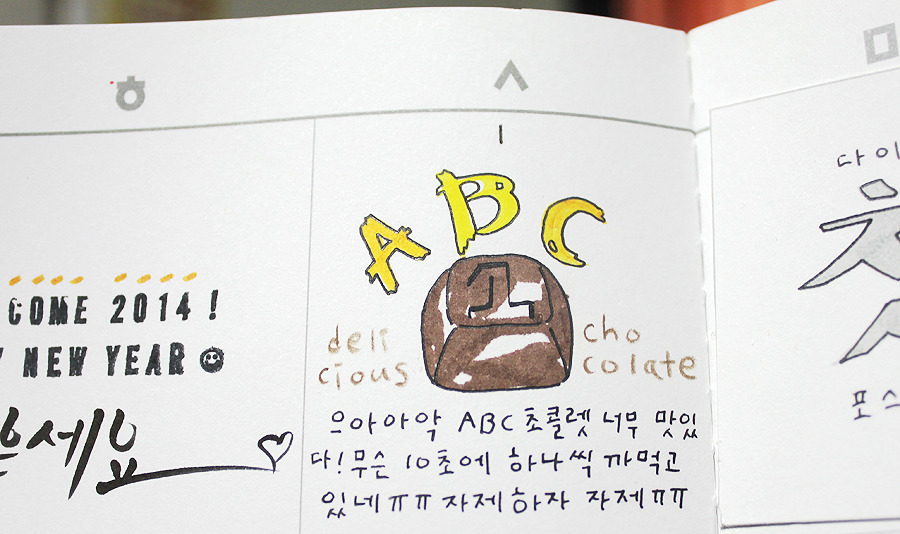 ㅎ
ㅅ
ㅁ
COME 2014 !
NEW YEAR
세요
ABC
deli
cious
cho
colate
으아아악 ABC 초콜렛 너무 맛있
다! 무슨 10초에 하나씩 까먹고
있네ㅠㅠ 자제하자 자제ㅠㅠ
다이
포스